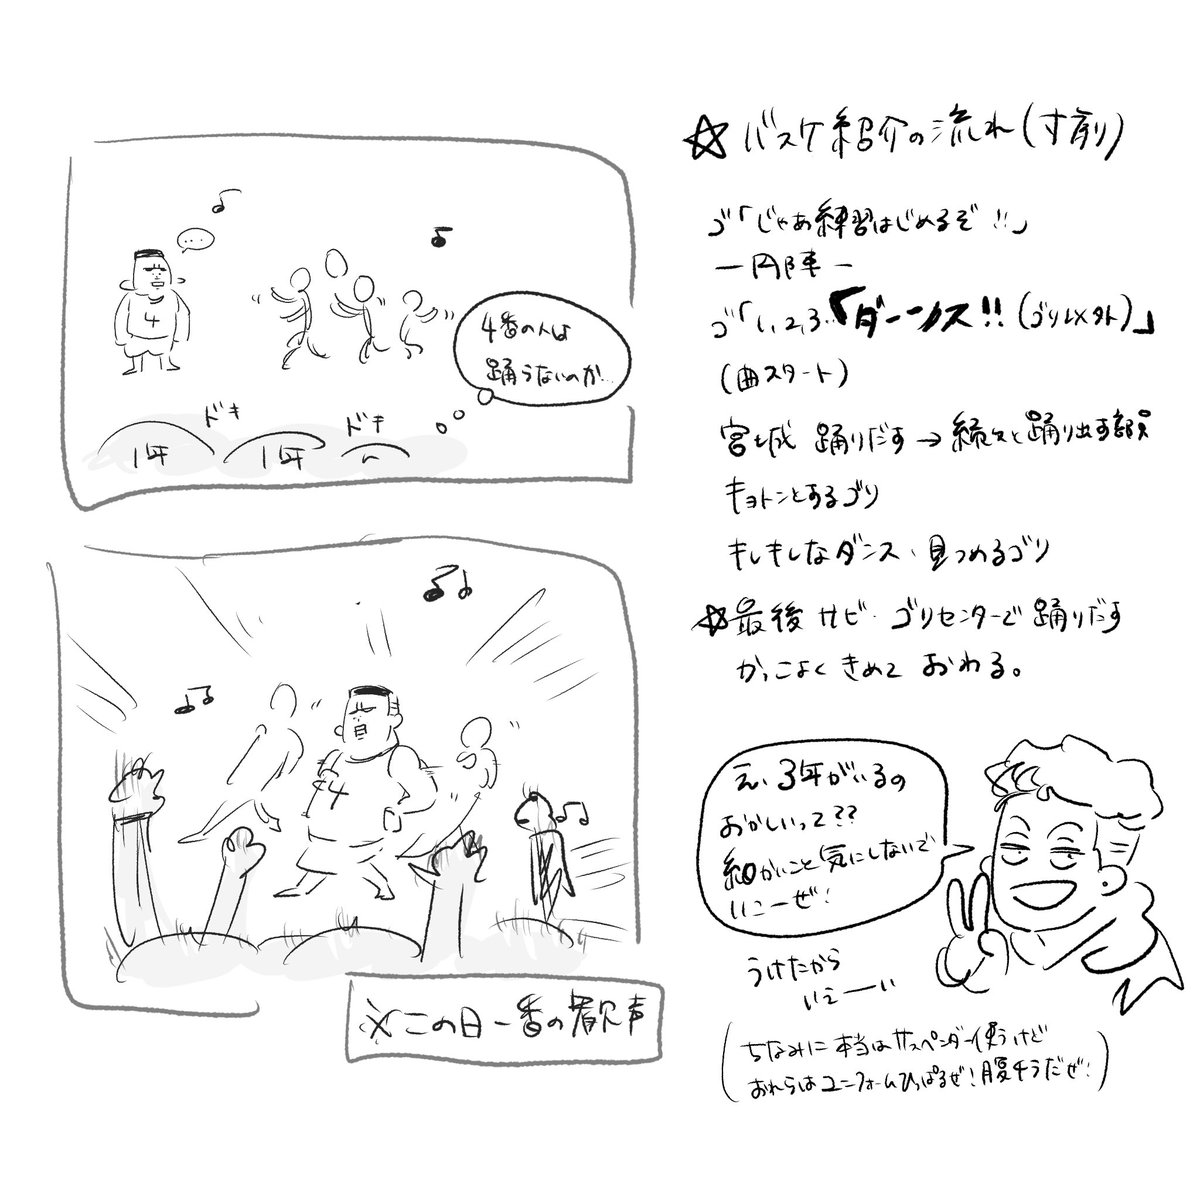 ☆バスケ紹介の流れ(寸劇)
ゴ「じゃあ練習はじめるぞ!!」
ー円陣ー
ゴ「1,2,3…「ダーンス!!(ゴリ以外)」
(曲スタート)
宮城 踊りだす→続々と踊り出す部員
キョトンとするゴリ
キレキレなダンス・見つめるゴリ
☆最後サビ・ゴリセンターで踊りだす
かっこよくきめておわる。
…
4
4番の人は
踊らないのか…
ドキ
ドキ
1年
1年
4
※この日一番の歓声
え、3年がいるの
おかしいって??
細かいこと気にしないで
いこーぜ!
うけたから
いえーい
(ちなみに本当はサスペンダー使うけど
おれらはユニフォームひっぱるぜ!腹チラだぜ!)